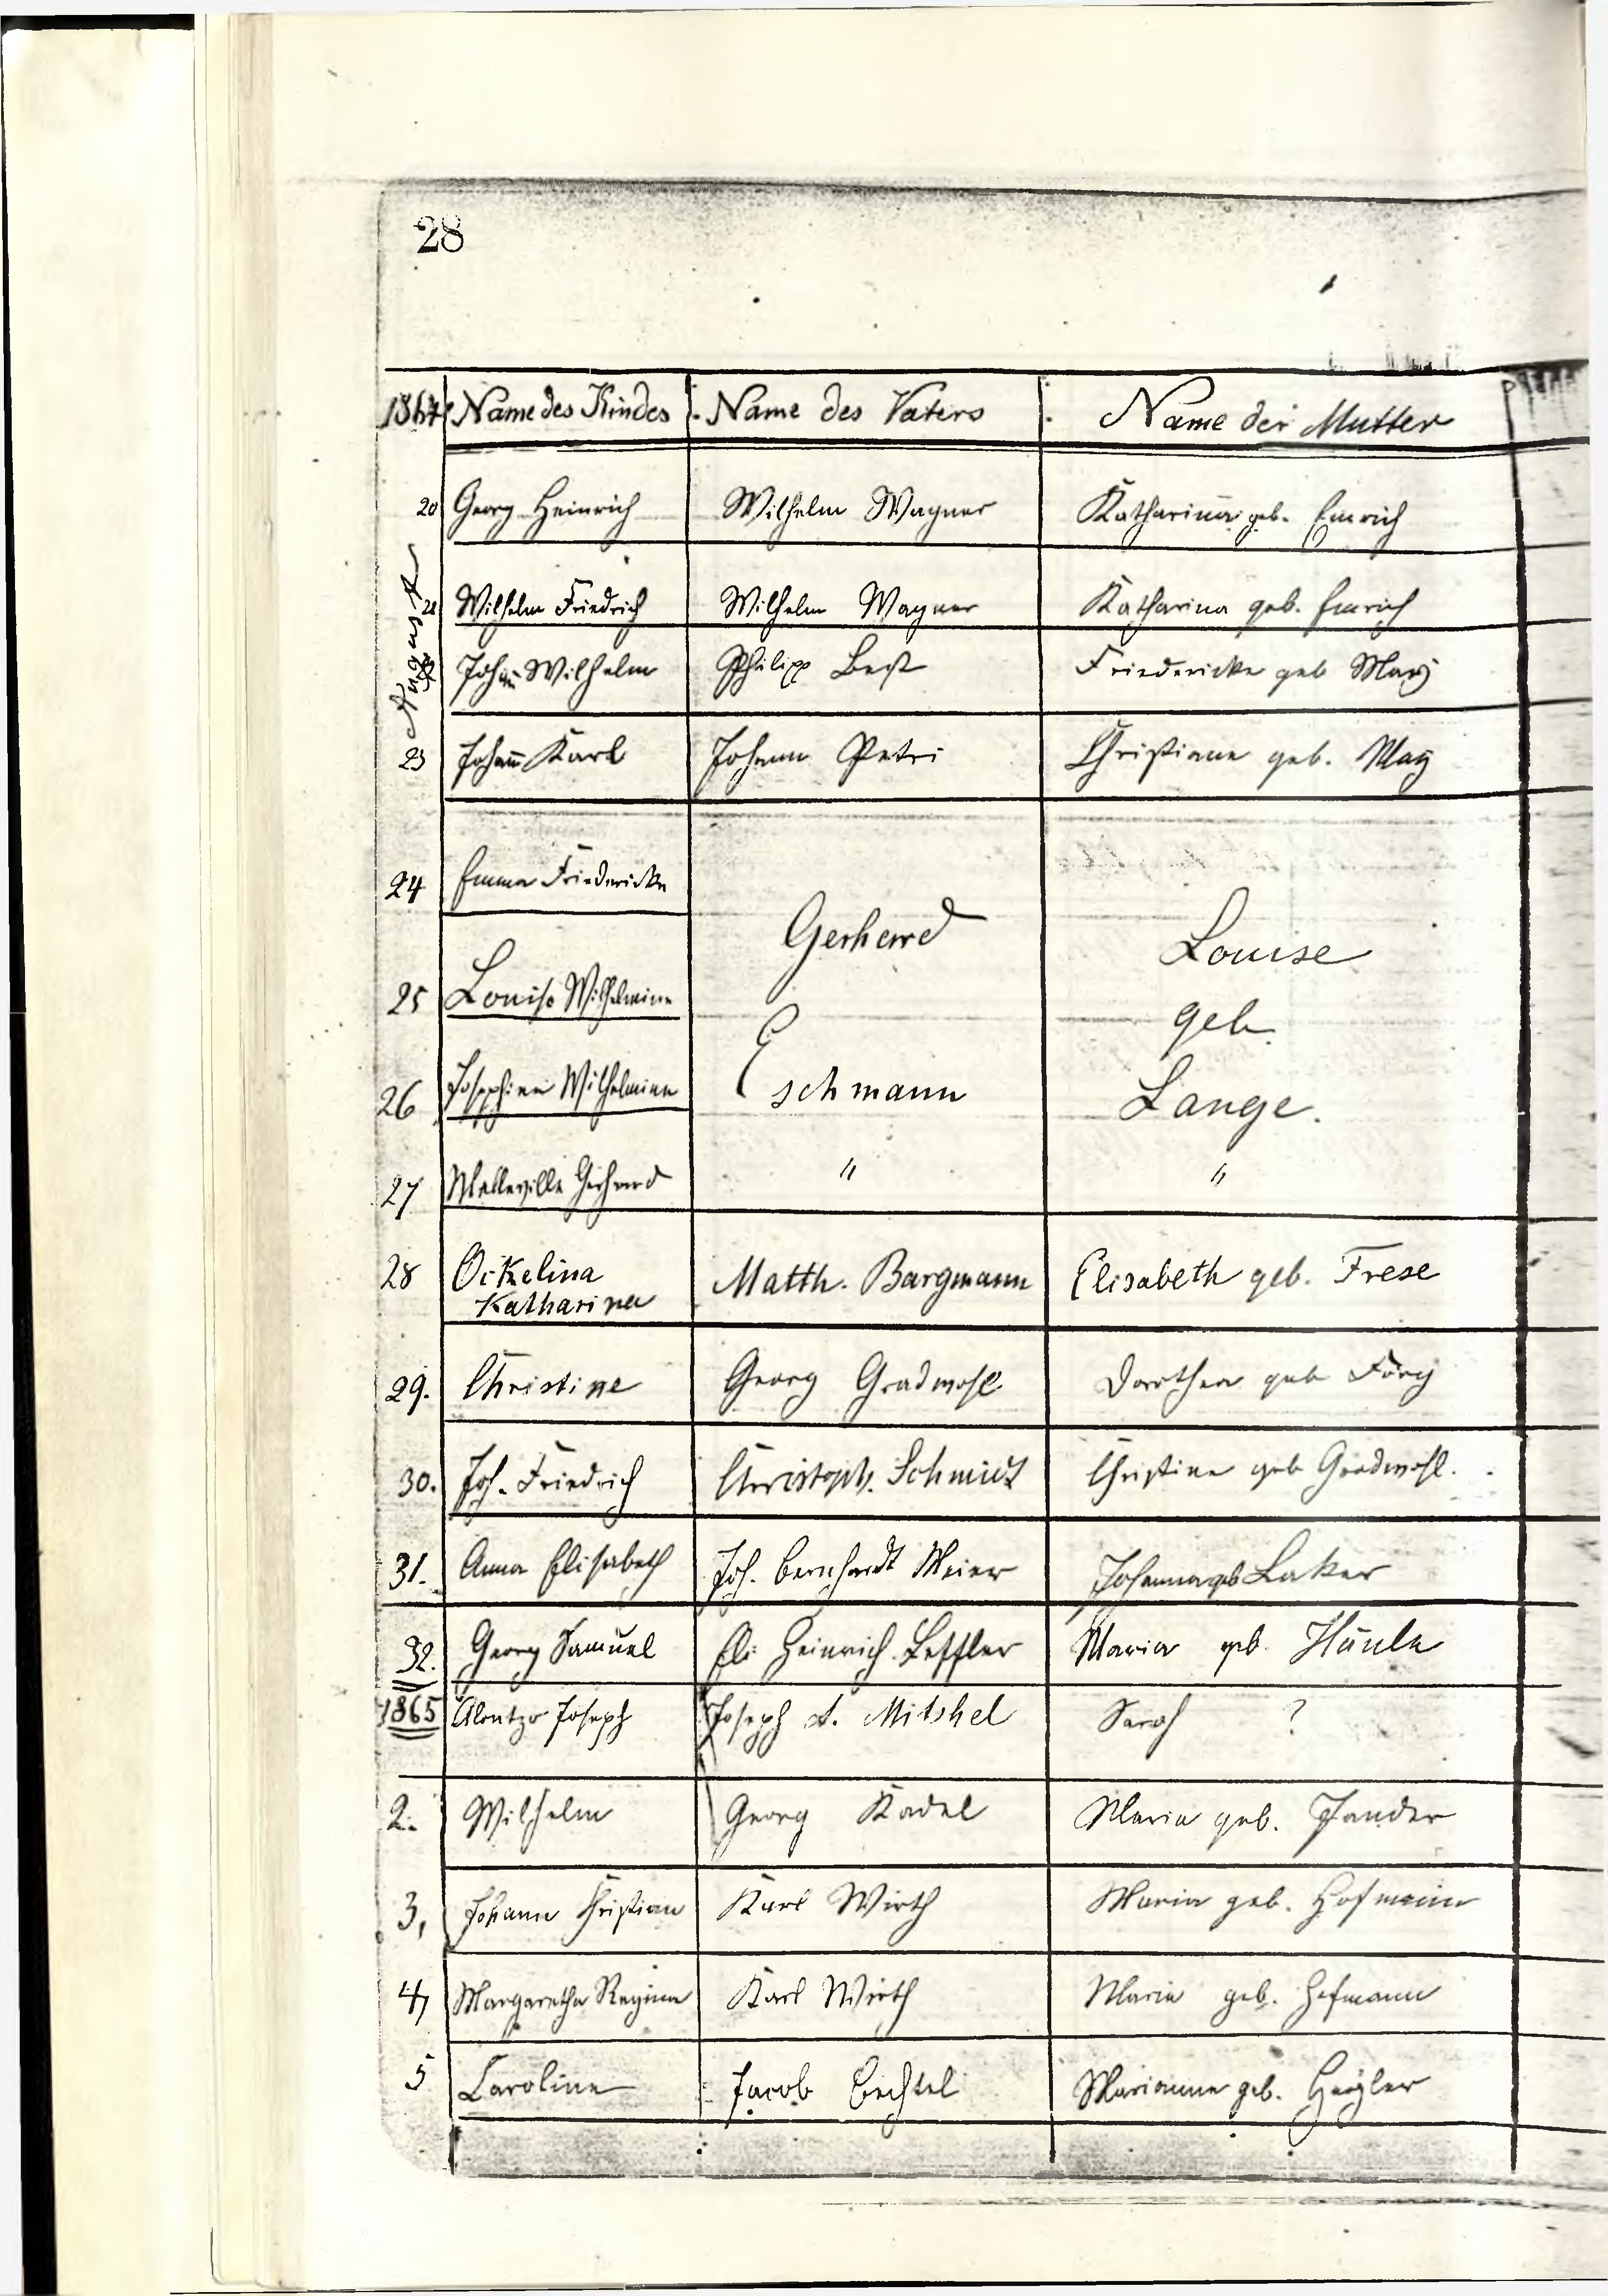 28
1864 Name des Kindes Name des Vaters Name der Mutter
20 Georg Heinrich Wilhelm Wagner Katharina geb. Emrich
August
21 Wilhelm Friedrich Wilhelm Wagner Katharina geb. Emrich
Johann Wilhelm Philipp Best Friedericke geb May
23 Johann Karl Johann Petri Christiane geb. May
24 Emma Friedericke
Gerhard Louise
25 Louise Wilhelmine
geb.
26 Josephine Wilhelmine Eschmann Lange.
27 Melleville Gerhard " "
28 Oikelina Matth. Bargmann Elisabeth geb. Frese
Katharina
29. Christine Georg Gradwohl Dorothea geb Förg
30. Joh. Friedrich Christoph. Schmidt Christine geb Gradwohl.
31. Anna Elisabeth Joh. Bernhardt Meier Johanna geb Laker
32. Georg Samuel Eli Heinrich Leffler Maria geb. Hünle
1865 Alontzo Joseph Joseph A. Mitshel Sarah ?
2. Wilhelm Georg Kadel Maria geb. Zander
3, Johann Christian Karl Wirth Maria geb. Hofmann
4, Margaretha Regina Karl Wirth Maria geb. Hofmann
5 Caroline Jacob Bechtel Marianne geb.